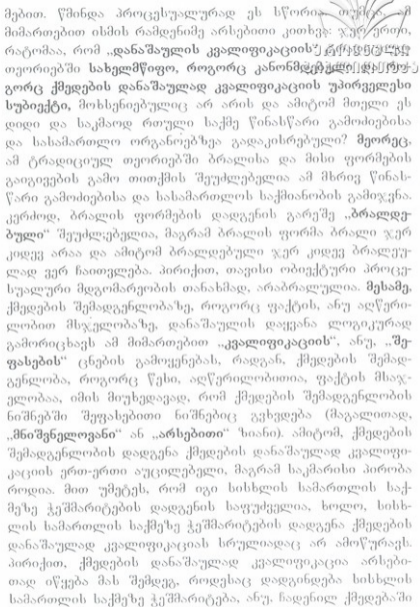 მებით. წმინდა პროცესუალურად ეს სწორია. თუმცა, ამ
მიმართებით ისმის რამდენიმე არსებითი კითხვა: ჯერ ერთი,
რატომაა, რომ „დანაშაულის კვალიფიკაციის"
თეორიებში სახელმწიფო, როგორც კანონმდებელი და რო-
გორც ქმედების დანაშაულად კვალიფიკაციის უპირველესი
სუბიექტი, მოხსენიებულიც არ არის და ამიტომ მთელი ეს
დიდი და საკმაოდ რთული საქმე წინასწარი გამოძიებისა
და სასამართლო ორგანოებზეა გადაკისრებული? მეორეც,
ამ ტრადიციულ თეორიებში ბრალისა და მისი ფორმების
გაიგივების გამო თითქმის შეუძლებელია ამ მხრივ წინას-
წარი გამოძიებისა და სასამართლოს საქმიანობის გამიჯვნა.
კერძოდ, ბრალის ფორმების დადგენის გარეშე „ბრალდე-
ბული" შეუძლებელია, მაგრამ ბრალის ფორმა ბრალი ჯერ
კიდევ არაა და ამიტომ ბრალდებული ჯერ კიდევ ბრალეუ-
ლად ვერ ჩაითვლება. პირიქით, თავისი ობიექტური პროცე-
სუალური მდგომარეობის თანახმად, არაბრალეულია. მესამე,
ქმედების შემადგენლობაზე, როგორც ფაქტის, ანუ აღწერი-
ლობით მსჯელობაზე, დანაშაულის დაყვანა ლოგიკურად
გამორიცხავს ამ მიმართებით „კვალიფიკაციის", ანუ, „შე-
ფასების" ცნების გამოყენებას, რადგან, ქმედების შემად-
გენლობა, როგორც წესი, აღწერილობითია, ფაქტის მსაჯ-
ელობაა, იმის მიუხედავად, რომ ქმედების შემადგენლობის
ნიშნებში შეფასებითი ნიშნებიც გვხვდება (მაგალითად,
„მნიშვნელოვანი" ან „არსებითი" ზიანი). ამიტომ, ქმედების
შემადგენლობის დადგენა ქმედების დანაშაულად კვალიფი-
კაციის ერთ-ერთი აუცილებელი, მაგრამ საკმარისი პირობა
როდია. მით უმეტეს, რომ იგი სისხლის სამართლის საქ-
მეზე ჭეშმარიტების დადგენის საფუძველია, ხოლო, სისხ-
ლის სამართლის საქმეზე ჭეშმარიტების დადგენა ქმედების
დანაშაულად კვალიფიკაციას სრულიადაც არ ამოწურავს.
პირიქით, ქმედების დანაშაულად კვალიფიკაცია არსები-
თად იწყება მას შემდეგ, როდესაც დადგინდება სისხლის
სამართლის საქმეზე ჭეშმარიტება, ანუ, ჩადენილ ქმედებაში